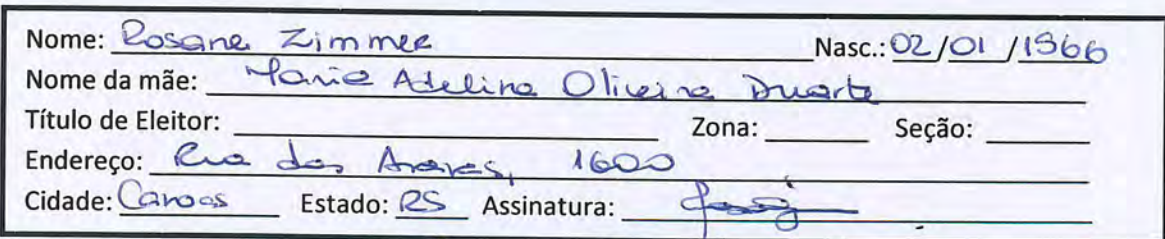 Nome: Rosane Zimmer Nasc.: 02/01/1966
Nome da mãe: Maria Adelina Oliveira Duarte
Título de Eleitor: Zona: Seção:
Endereço: Rua das Araras, 1600
Cidade: Canoas Estado: RS Assinatura: